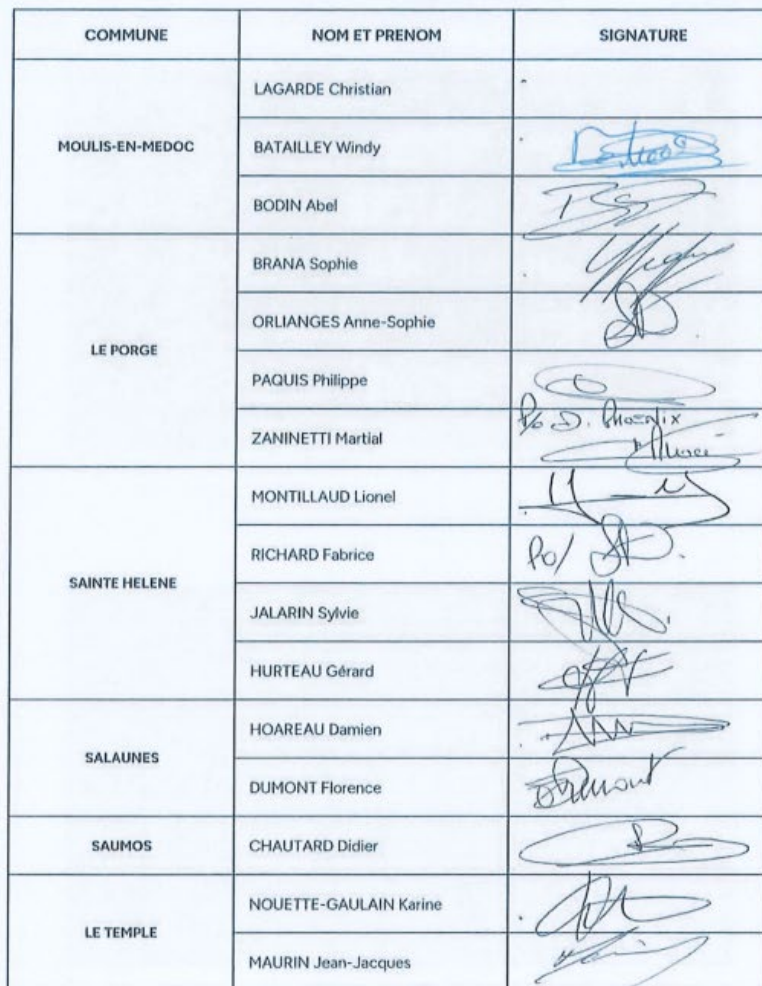 COMMUNE NOM ET PRENOM SIGNATURE
MOULIS-EN-MEDOC
LAGARDE Christian
BATAILLEY Windy
BODIN Abel
LE PORGE
BRANA Sophie
ORLIANGES Anne-Sophie
PAQUIS Philippe
ZANINETTI Martial P/o D. PHOENIX
SAINTE HELENE
MONTILLAUD Lionel
RICHARD Fabrice Po/
JALARIN Sylvie
HURTEAU Gérard
SALAUNES
HOAREAU Damien
DUMONT Florence Dumont
SAUMOS
CHAUTARD Didier
LE TEMPLE
NOUETTE-GAULAIN Karine
MAURIN Jean-Jacques